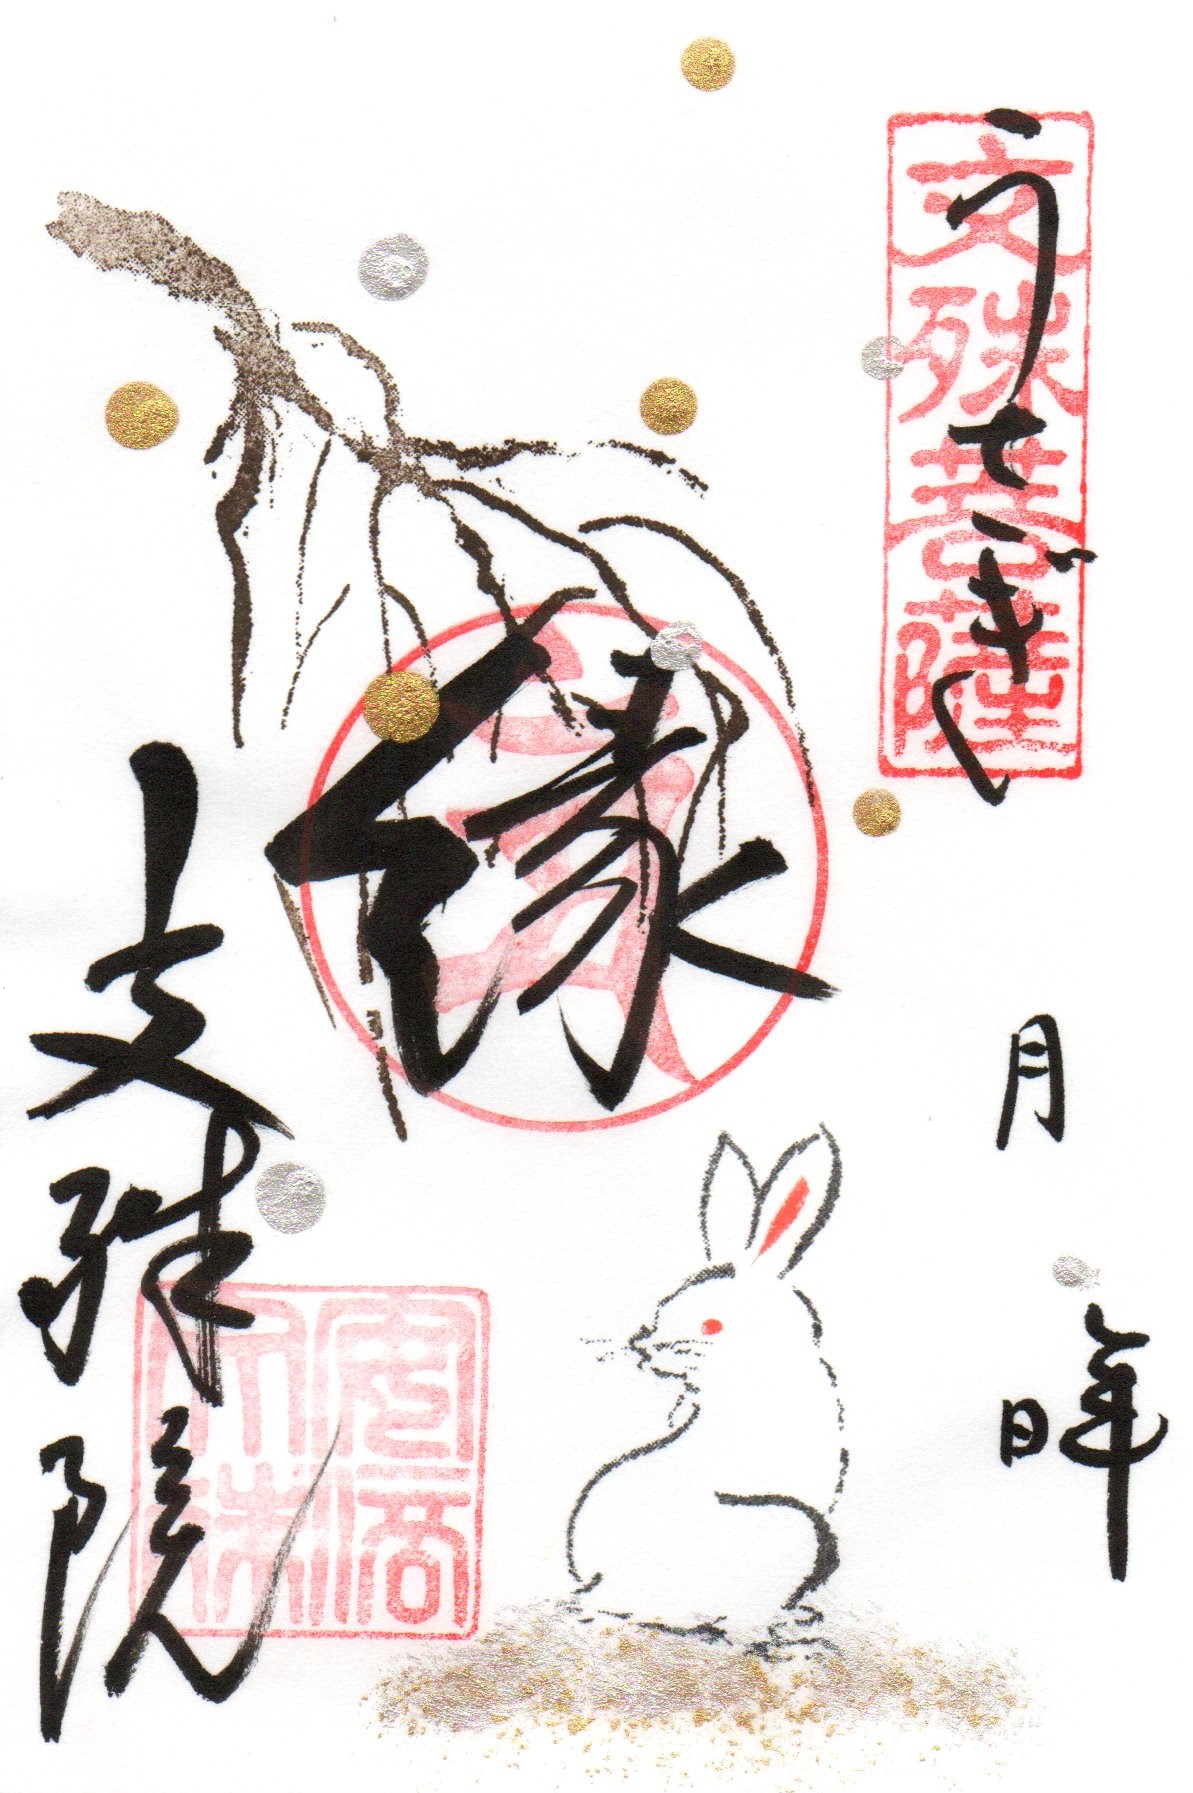 うさぎ
文殊菩薩
年
月
日
縁
文殊院